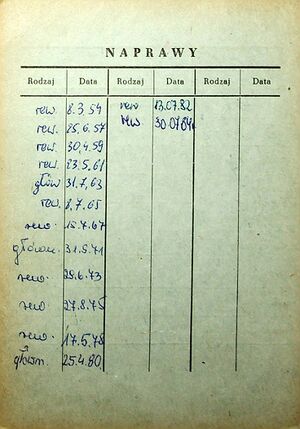 NAPRAWY
Rodzaj Data Rodzaj Data Rodzaj Data
rew. 8.3.54 rew 13.07.82
rew. 25.6.57 rew 30.07.84
rew. 30.4.59
rew. 23.5.61
głów 31.7.63
rew. 8.7.65
rewo. 15.7.67
główn. 31.5.71
rewo 29.6.73
rewo 27.8.75
rewo. 17.5.78
główn. 25.4.80